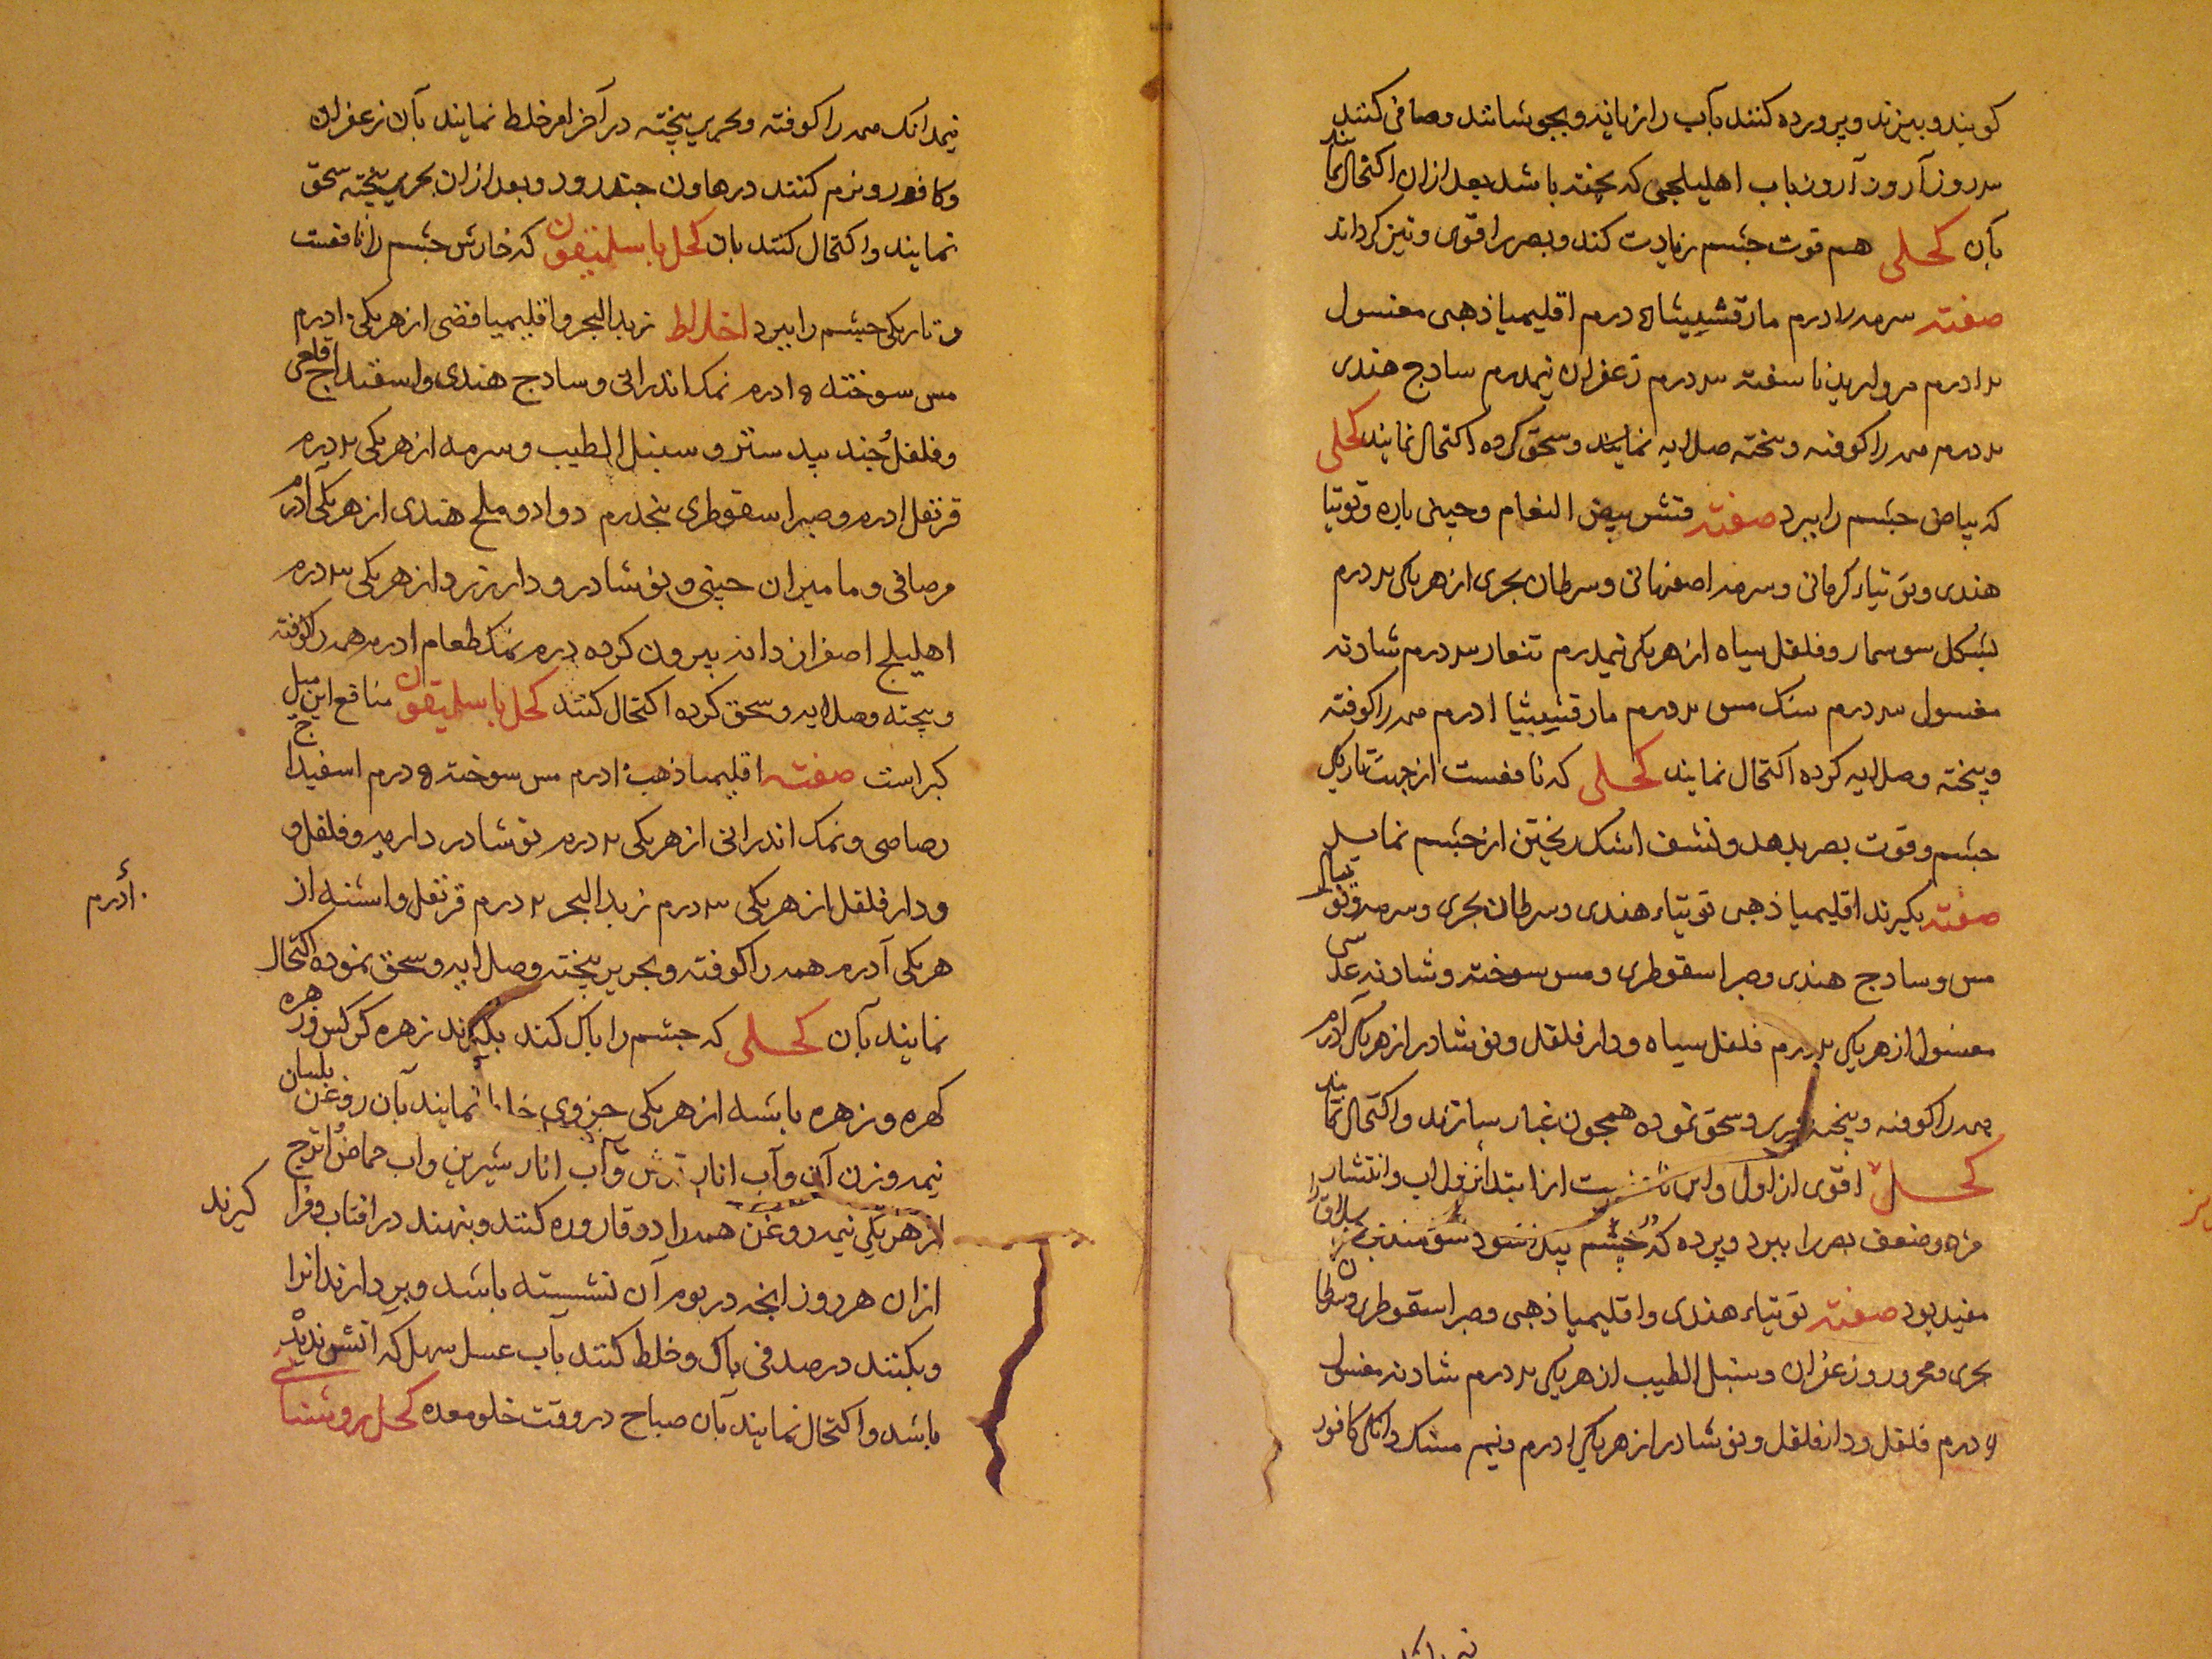 کوبند و بیزند و پرورده کنند بآب رازیانه و بجوشانند و صافی کنند
سه روز آرون آرون باب اهلیلجی که پخته باشد بعد ازان اکتحال نمایند
بآن کحلی هم قوت چشم زیادت کند و بصر را قوی و تیز کرداند
صفته سرمه درم مارقشیشا ۵ درم اقلیمیا ذهبی مغسول
درم مروارید ناسفته سه درم زعفران نیمدرم سادج هندی
درم همه را کوفته و پخته صلایه نمایند و سحق کرده اکتحال نمایند کحلی
که بیاض چشم را ببرد صفته قشر بیض النعام و چینی پاره و توتیا
هندی و توتیاء کرمانی و سرمه اصفهانی و سرطان بحری از هریکی درم
بشکل سوسمار و فلفل سیاه از هریکی نیمدرم تنعار سه درم شادنه
مغسول سه درم سنک مس درم مارقشیشا ادرم همه را کوفته
و پخته و صلایه کرده اکتحال نمایند کحلی که نافعست از جهت تاریکی
چشم و قوت بصر بدهد و نشف اشک ریختن از چشم نماید
صفته بکیرند اقلیمیا ذهبی توتیاء هندی و سرطان بحری و سرمه و توبال
مس و سادج هندی و صبر اسقوطری و مس سوخته و شادنه عدسی
مغسول از هریکی درم فلفل سیاه و دارفلفل و نوشادر از هریکی ادرم
همه را کوفته و پخته بحریر و سحق نموده همچون غبار سازند و اکتحال نمایند
کحل اقوی از اول و این نافعست از ابتداء نزول اب و انتشار
و ضعف بصر را ببرد و پرده که در چشم پیدا شود سودمند بود
مفید بود صفته توتیاء هندی و اقلیمیا ذهبی و صبر اسقوطری و سرطان
بحری و زعفران و سنبل الطیب از هریکی درم شادنه مغسول
درم فلفل و دارفلفل و نوشادر از هریکی ادرم و نیم مشک دانکی کافور
نیمدانک همه را کوفته و بحریر پیخته در آخر امر خلط نمایند بآن زعفران
و کافور و نرم کنند در هاون چند روز و بعد ازان بحریر پیخته سحق
نمایند و اکتحال کنند بان کحل باسلیقون که خارش چشم را نافعست
و تاریکی چشم را ببرد اخلاط زبد البحر و اقلیمیا فضی از هریکی ۱۰ درم
مس سوخته ۵ ادرم نمک اندرانی و سادج هندی و اسفیداج قلعی
و فلفل جند بیدستر و سنبل الطیب و سرمه از هریکی ۲ درم
قرنفل ادرم و صبر اسقوطری پنجدرم دوادو ملح هندی از هریکی ادرم
مرصافی و مامیران چینی و نوشادر و دارزرد از هریکی ۳ درم
اهلیلج اصفر از دانه بیرون کرده درم نمک طعام ادرم همه را کوفته
و پیخته و صلایه و سحق کرده اکتحال کنند کحل باسلیقون منافع این میل
کبر است صفته اقلیمیا ذهب ۱۰ درم مس سوخته ۵ درم اسفیداج
رصاصی و نمک اندرانی از هریکی ۲ درم نوشادر دارمیر و فلفل و
و دارفلفل از هریکی ۳ درم زبد البحر ۲ درم قرنفل و اشنه از
۱۰ درم
هریکی ادرم همه را کوفته و بحریر پیخته و صلایه و سحق نموده اکتحال
نمایند بآن کحلی که چشم را پاک کند بکیرند زهره کرکس و زهره
کهره و زهره باشه از هریکی جزوی نمایند بآن روغن بلسان
نیمه وزن آن و آب انار ترش و آب انار شیرین و اب حماض اترج
از هریکی نیمه روغن همه را دو قاروره کنند و بنهند در افتاب و فرا
کیرند
ازان هر روز انچه در بوم آن نشسته باشد و بردارند انرا
و بکنند در صدفی پاک و خلط کنند بآب عسل سهل که آتش ندیده
باشد و اکتحال نمایند بآن صباح در وقت خلو معده کحل روشنائی